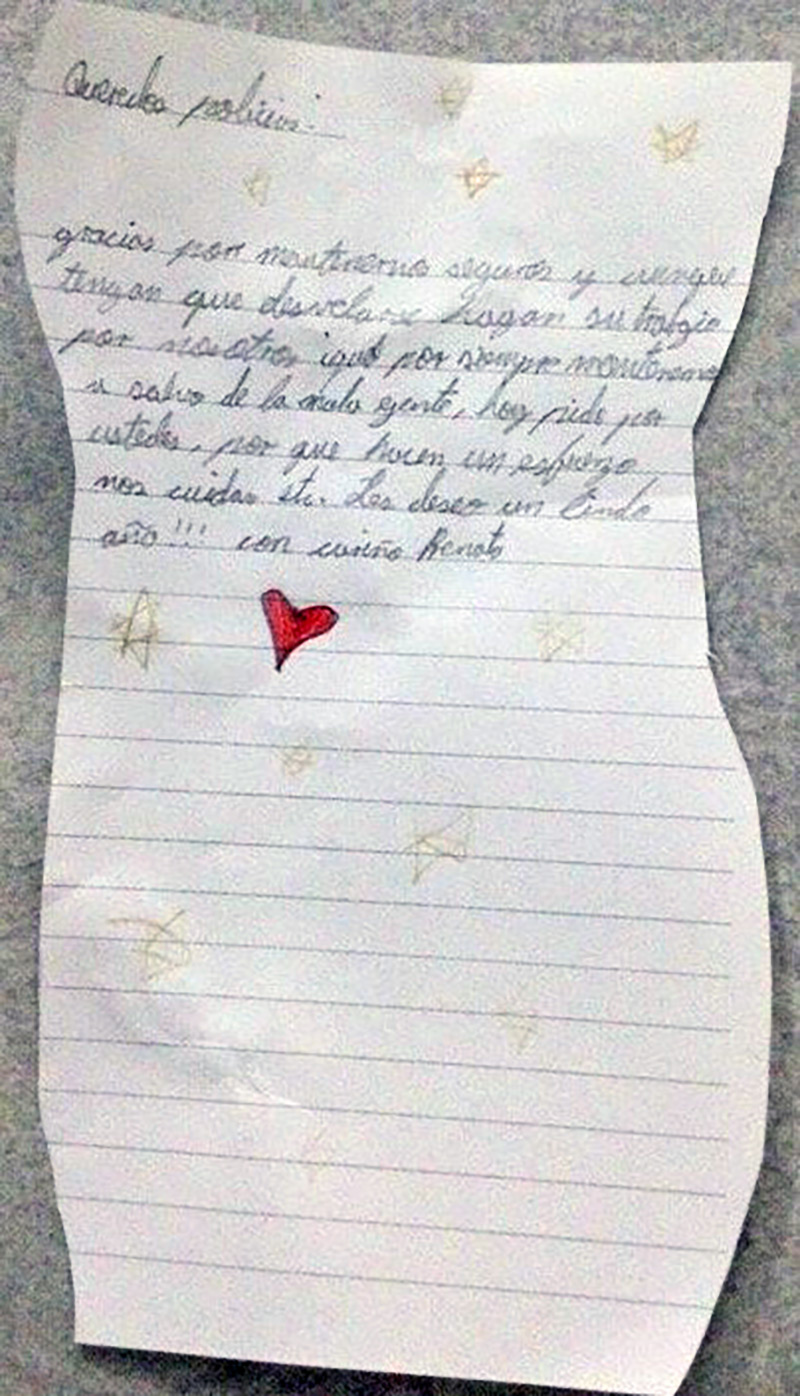 Queridos policias:
gracias por mantenernos seguros y aunque
tengan que desvelarse hagan su trabajo
por nosotros que por siempre mantenernos
a salvo de la mala gente, hoy pido por
ustedes, por que hacen un esfuerzo
nos cuidan etc. Les deseo un lindo
año!!! con cariño Renato